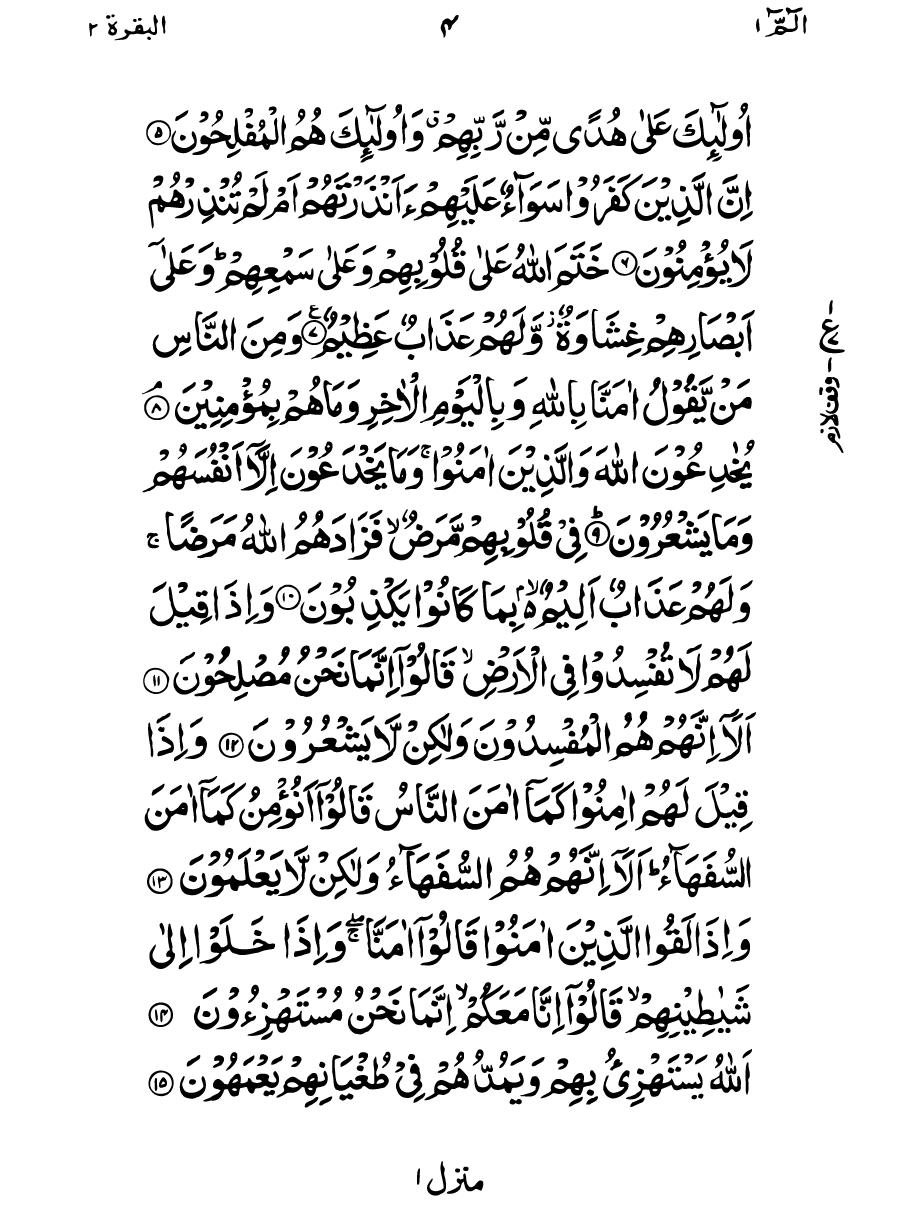 الٓمّٓ ١
٤
البقرة ٢
اُولٰٓئِكَ عَلٰى هُدًى مِّنْ رَّبِّهِمْ ۗ وَاُولٰٓئِكَ هُمُ الْمُفْلِحُوْنَ ۝٥
اِنَّ الَّذِيْنَ كَفَرُوْا سَوَآءٌ عَلَيْهِمْ ءَاَنْذَرْتَهُمْ اَمْ لَمْ تُنْذِرْهُمْ
لَا يُؤْمِنُوْنَ ۝٦ خَتَمَ اللّٰهُ عَلٰى قُلُوْبِهِمْ وَعَلٰى سَمْعِهِمْ ؕ وَعَلٰٓى
اَبْصَارِهِمْ غِشَاوَةٌ ؗ وَّلَهُمْ عَذَابٌ عَظِيْمٌ ۝٧ وَمِنَ النَّاسِ
مَنْ يَّقُوْلُ اٰمَنَّا بِاللّٰهِ وَبِالْيَوْمِ الْاٰخِرِ وَمَا هُمْ بِمُؤْمِنِيْنَ ۝٨
يُخٰدِعُوْنَ اللّٰهَ وَالَّذِيْنَ اٰمَنُوْا ۚ وَمَا يَخْدَعُوْنَ اِلَّآ اَنْفُسَهُمْ
وَمَا يَشْعُرُوْنَ ۝٩ فِيْ قُلُوْبِهِمْ مَّرَضٌ ۙ فَزَادَهُمُ اللّٰهُ مَرَضًا ۚ
وَلَهُمْ عَذَابٌ اَلِيْمٌ ۢ ۙ بِمَا كَانُوْا يَكْذِبُوْنَ ۝١٠ وَاِذَا قِيْلَ
لَهُمْ لَا تُفْسِدُوْا فِى الْاَرْضِ ۙ قَالُوْٓا اِنَّمَا نَحْنُ مُصْلِحُوْنَ ۝١١
اَلَآ اِنَّهُمْ هُمُ الْمُفْسِدُوْنَ وَلٰكِنْ لَّا يَشْعُرُوْنَ ۝١٢ وَاِذَا
قِيْلَ لَهُمْ اٰمِنُوْا كَمَآ اٰمَنَ النَّاسُ قَالُوْٓا اَنُؤْمِنُ كَمَآ اٰمَنَ
السُّفَهَآءُ ؕ اَلَآ اِنَّهُمْ هُمُ السُّفَهَآءُ وَلٰكِنْ لَّا يَعْلَمُوْنَ ۝١٣
وَاِذَا لَقُوا الَّذِيْنَ اٰمَنُوْا قَالُوْٓا اٰمَنَّا ۖۚ وَاِذَا خَلَوْا اِلٰى
شَيٰطِيْنِهِمْ ۙ قَالُوْٓا اِنَّا مَعَكُمْ ۙ اِنَّمَا نَحْنُ مُسْتَهْزِءُوْنَ ۝١٤
اَللّٰهُ يَسْتَهْزِئُ بِهِمْ وَيَمُدُّهُمْ فِيْ طُغْيَانِهِمْ يَعْمَهُوْنَ ۝١٥
ع
وقف لازم
منزل ١